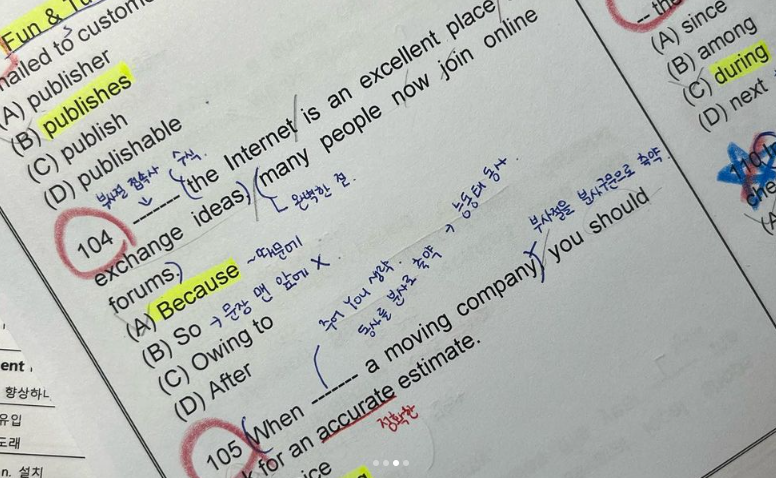 Fun &
mailed to custome
(A) publisher
(B) publishes
(C) publish
(D) publishable
부사절 접속사
수식.
104 ------ the Internet is an excellent place
exchange ideas, many people now join online
forums.
완벽한 절.
(A) Because ~때문에
(B) So → 문장 맨 앞에 X
(C) Owing to
(D) After
주어 you 생략.
동사를 분사로 축약 → 능동태 동사.
부사절을 분사구문으로 축약.
105 When ------ a moving company, you should
k for an accurate estimate.
정확한
ice
-- the
(A) since
(B) among
(C) during
(D) next
110
che
(A
ent
향상하
유입
도래
n. 설치